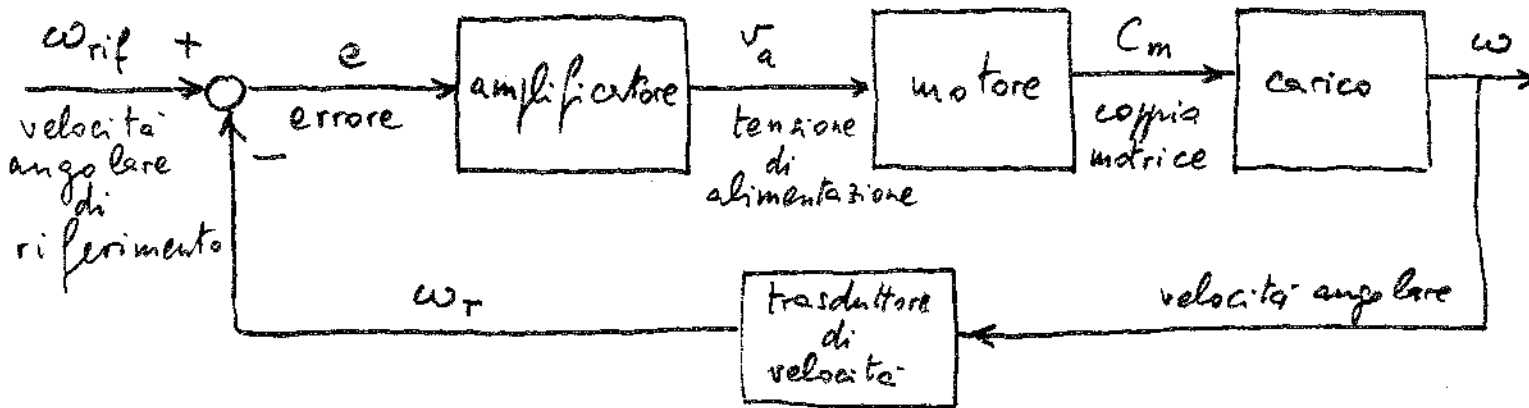 ω_rif +
velocità
angolare
di
riferimento
−
e
errore
amplificatore
v_a
tensione
di
alimentazione
motore
C_m
coppia
motrice
carico
ω
velocità angolare
trasduttore
di
velocità
ω_r